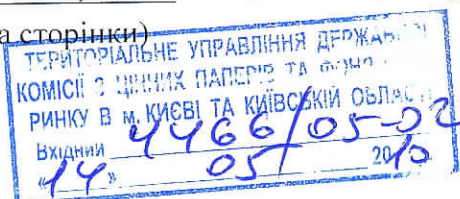 а сторінки)
ТЕРИТОРІАЛЬНЕ УПРАВЛІННЯ ДЕРЖАВНОЇ
КОМІСІЇ З ЦІННИХ ПАПЕРІВ ТА ФОНД
РИНКУ В м. КИЄВІ ТА КИЇВСЬКІЙ ОБЛАСТ
Вхідний 4466/05-02
«14» 05 2010